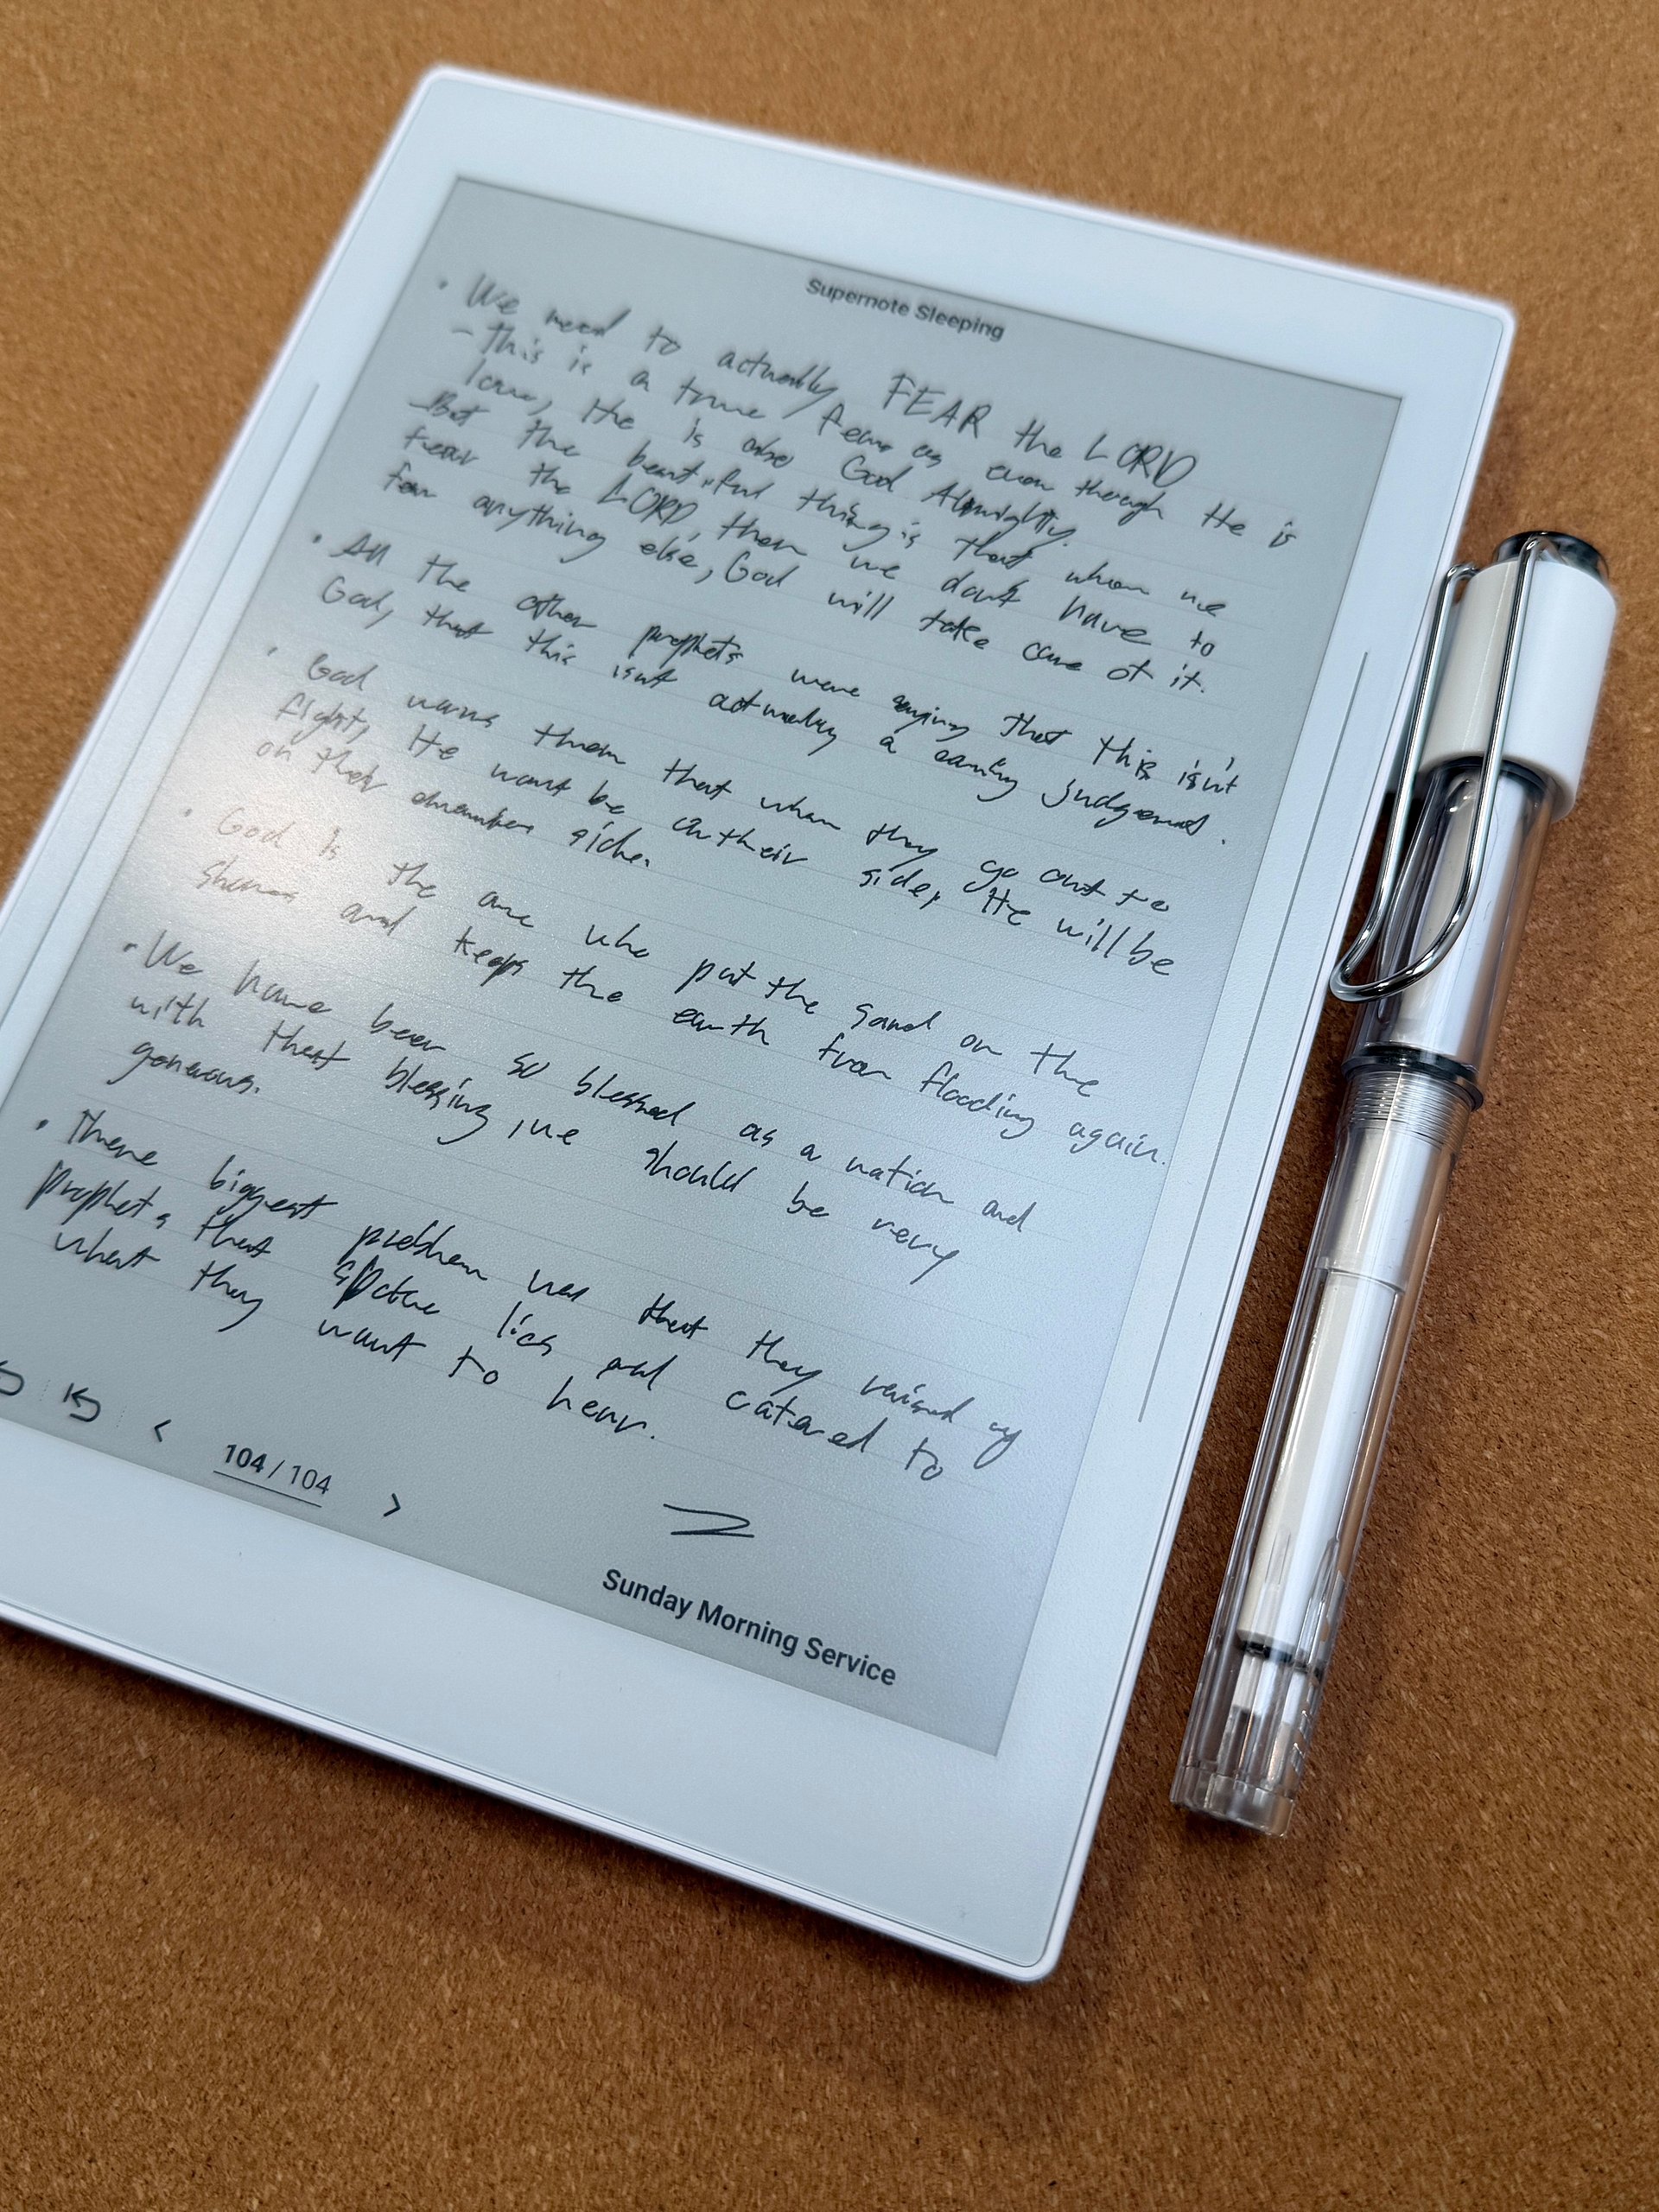 Supernote Sleeping
• We need to actually FEAR the LORD
- This is a true fear as even though He is
love, He is also God Almighty.
- But the beautiful thing is that when we
fear the LORD, then we don't have to
fear anything else, God will take care of it.
• All the other prophets were saying that this isn't
God, that this isn't actually a judgement.
• God warns them that when they go out to
fight, He wont be on their side, He will be
on their side.
• God is the one who put the sand on the
shores and keeps the earth from flooding again.
• We have been so blessed as a nation and
with that blessing, we should be very
generous.
• There biggest problem was that they raised up
prophets that spoke lies and catered to
what they want to hear.
< 104 / 104 >
Sunday Morning Service